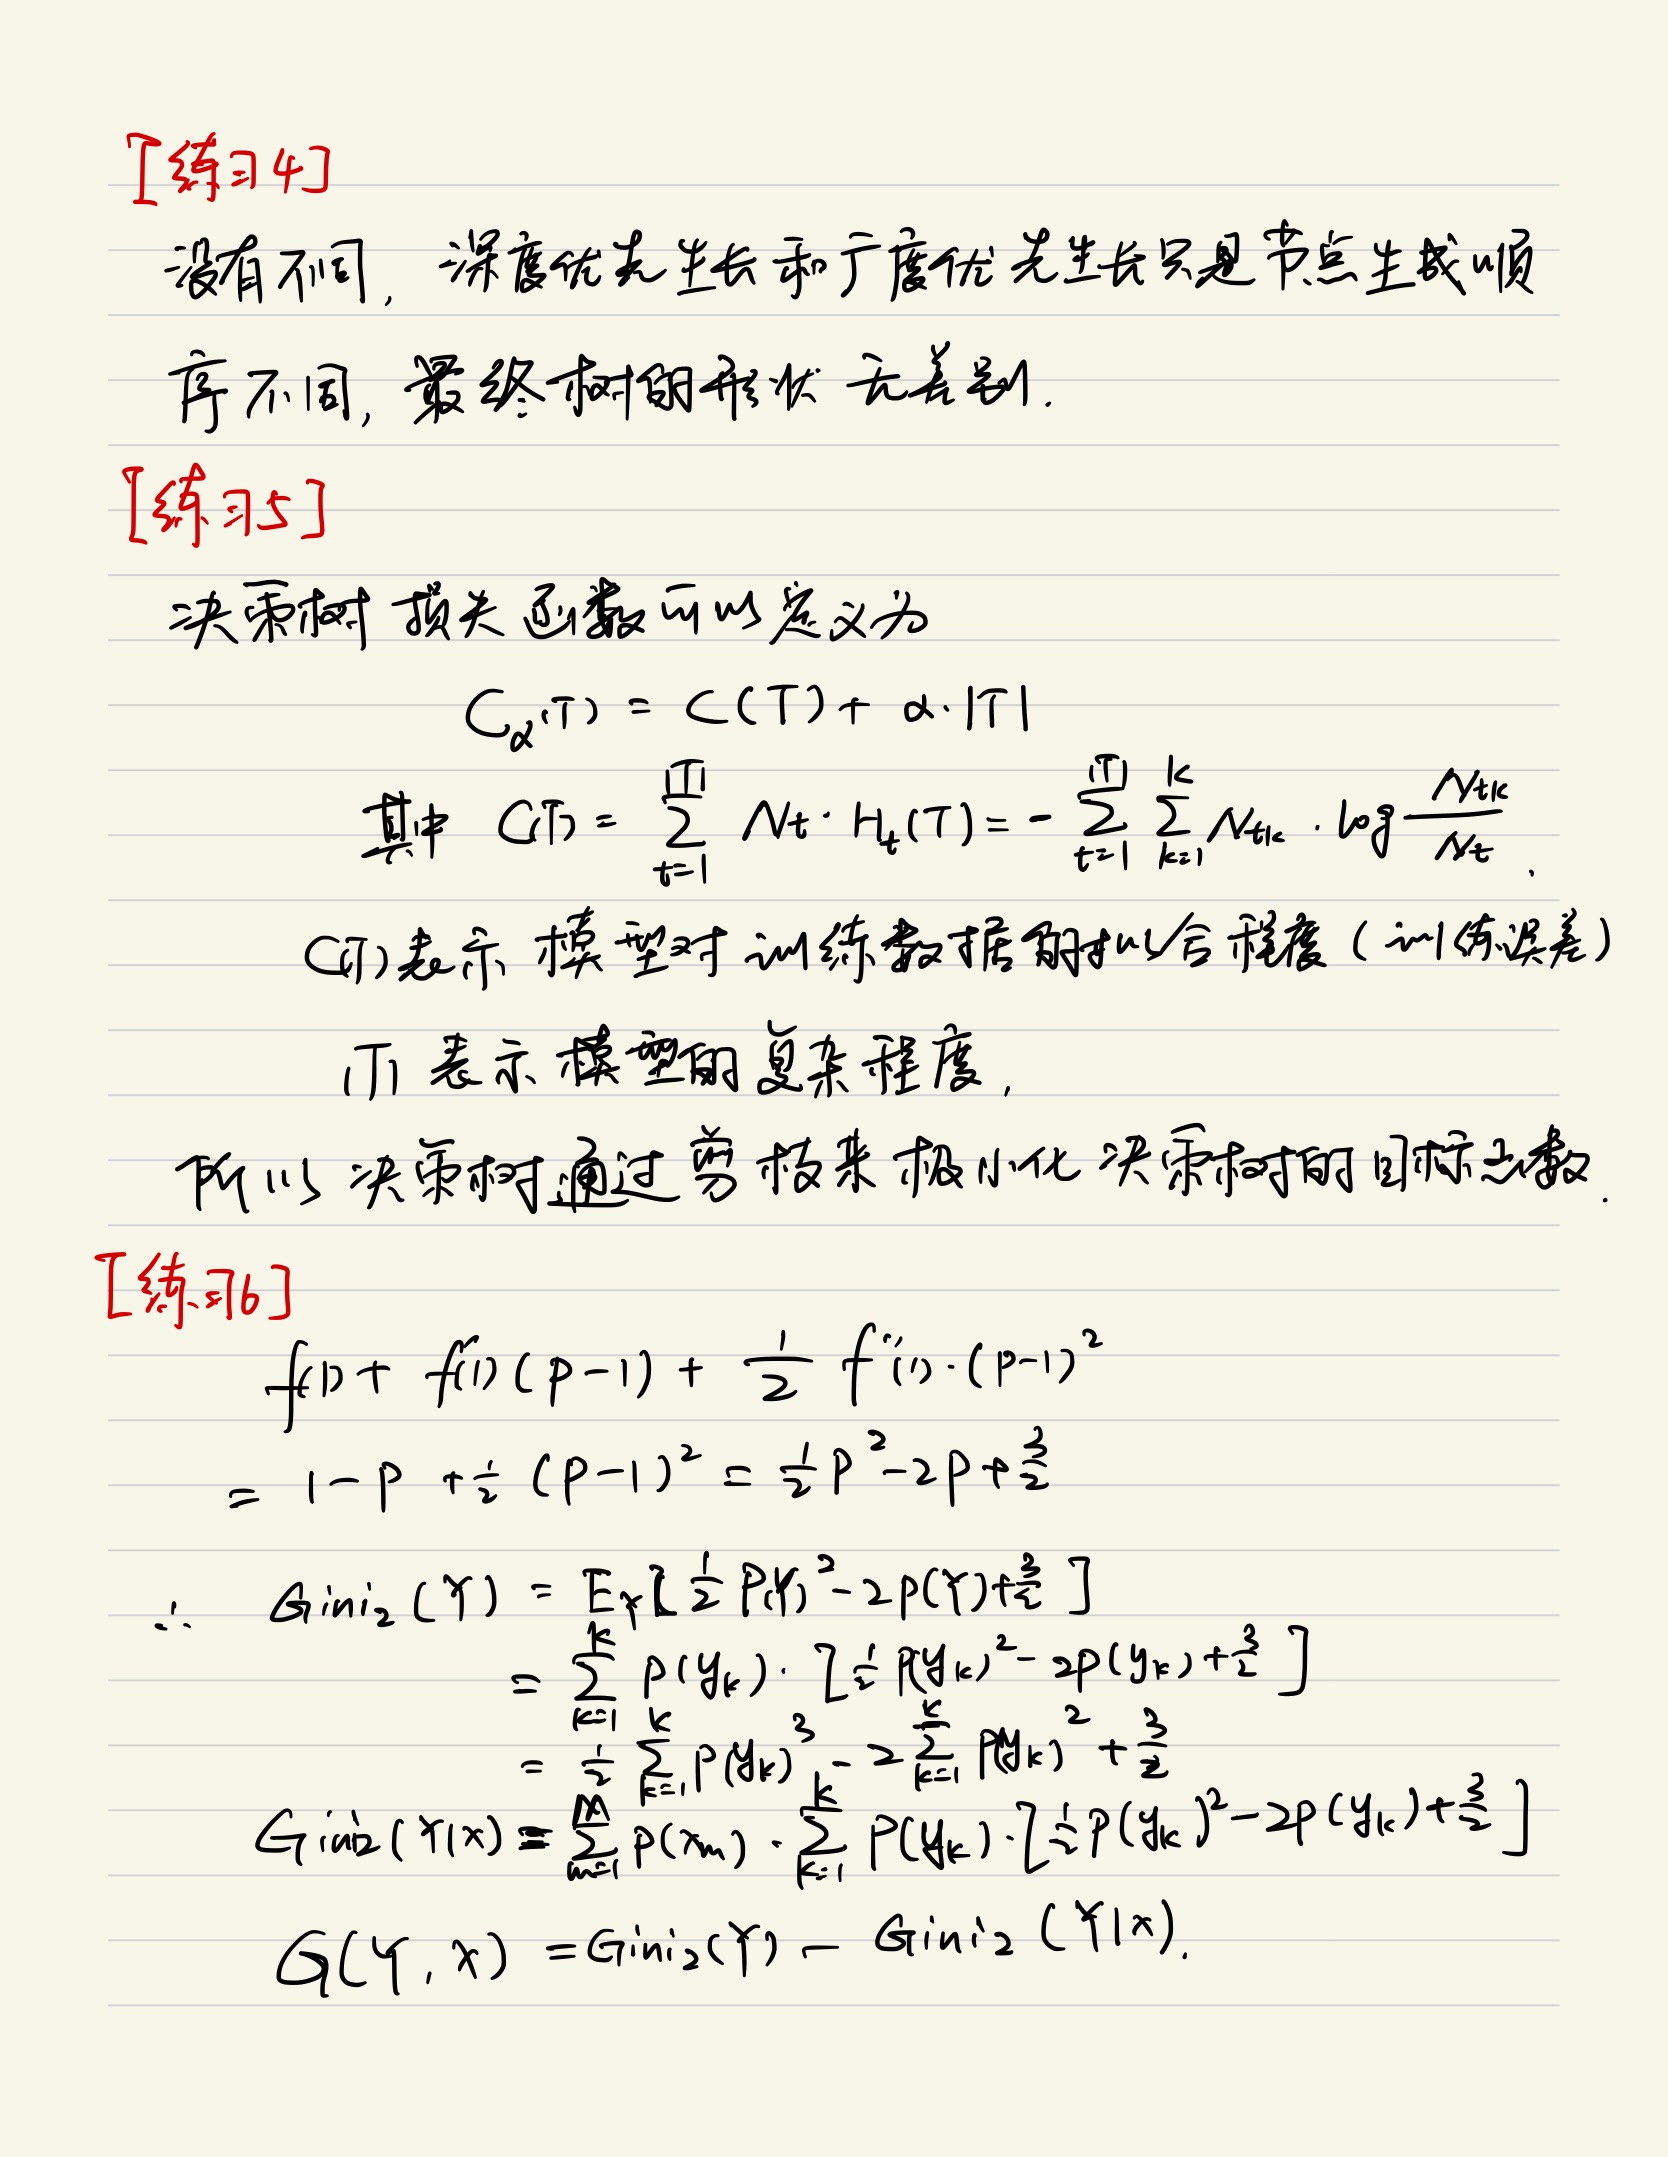 [练习4]
没有不同, 深度优先生长和广度优先生长只是节点生成顺
序不同, 最终树的形状无差别.
[练习5]
决策树损失函数可以定义为
C_α(T) = C(T) + α·|T|
其中 C(T) = \sum_{t=1}^{|T|} N_t · H_t(T) = - \sum_{t=1}^{|T|} \sum_{k=1}^{K} N_{tk} · log \frac{N_{tk}}{N_t} .
C(T)表示模型对训练数据的拟合程度(训练误差)
|T| 表示模型的复杂程度,
所以决策树通过剪枝来极小化决策树的目标函数.
[练习6]
f(1) + f'(1)(p-1) + \frac{1}{2} f''(1)·(p-1)^2
= 1-p + \frac{1}{2}(p-1)^2 = \frac{1}{2}p^2 - 2p + \frac{3}{2}
∴ Gini_2(Y) = E_Y[\frac{1}{2}P(Y)^2 - 2p(Y) + \frac{3}{2}]
= \sum_{k=1}^{K} p(y_k)·[\frac{1}{2}p(y_k)^2 - 2p(y_k) + \frac{3}{2}]
= \frac{1}{2}\sum_{k=1}^{K} p(y_k)^3 - 2\sum_{k=1}^{K} p(y_k)^2 + \frac{3}{2}
Gini_2(Y|X) = \sum_{m=1}^{M} p(x_m)·\sum_{k=1}^{K} P(y_k)·[\frac{1}{2}p(y_k)^2 - 2p(y_k) + \frac{3}{2}]
G(Y,X) = Gini_2(Y) - Gini_2(Y|X).